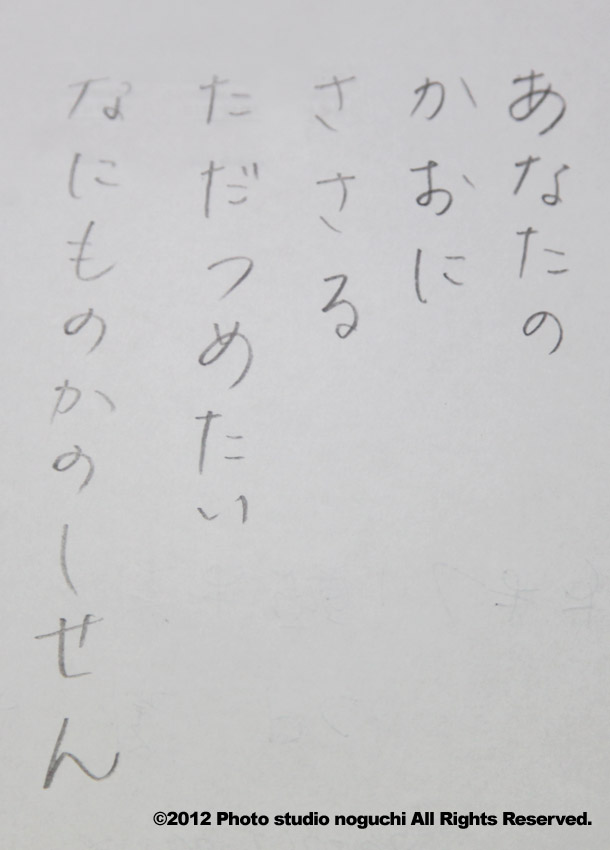 あなたの
かおに
ささる
ただつめたい
なにものかのしせん
©2012 Photo studio noguchi All Rights Reserved.